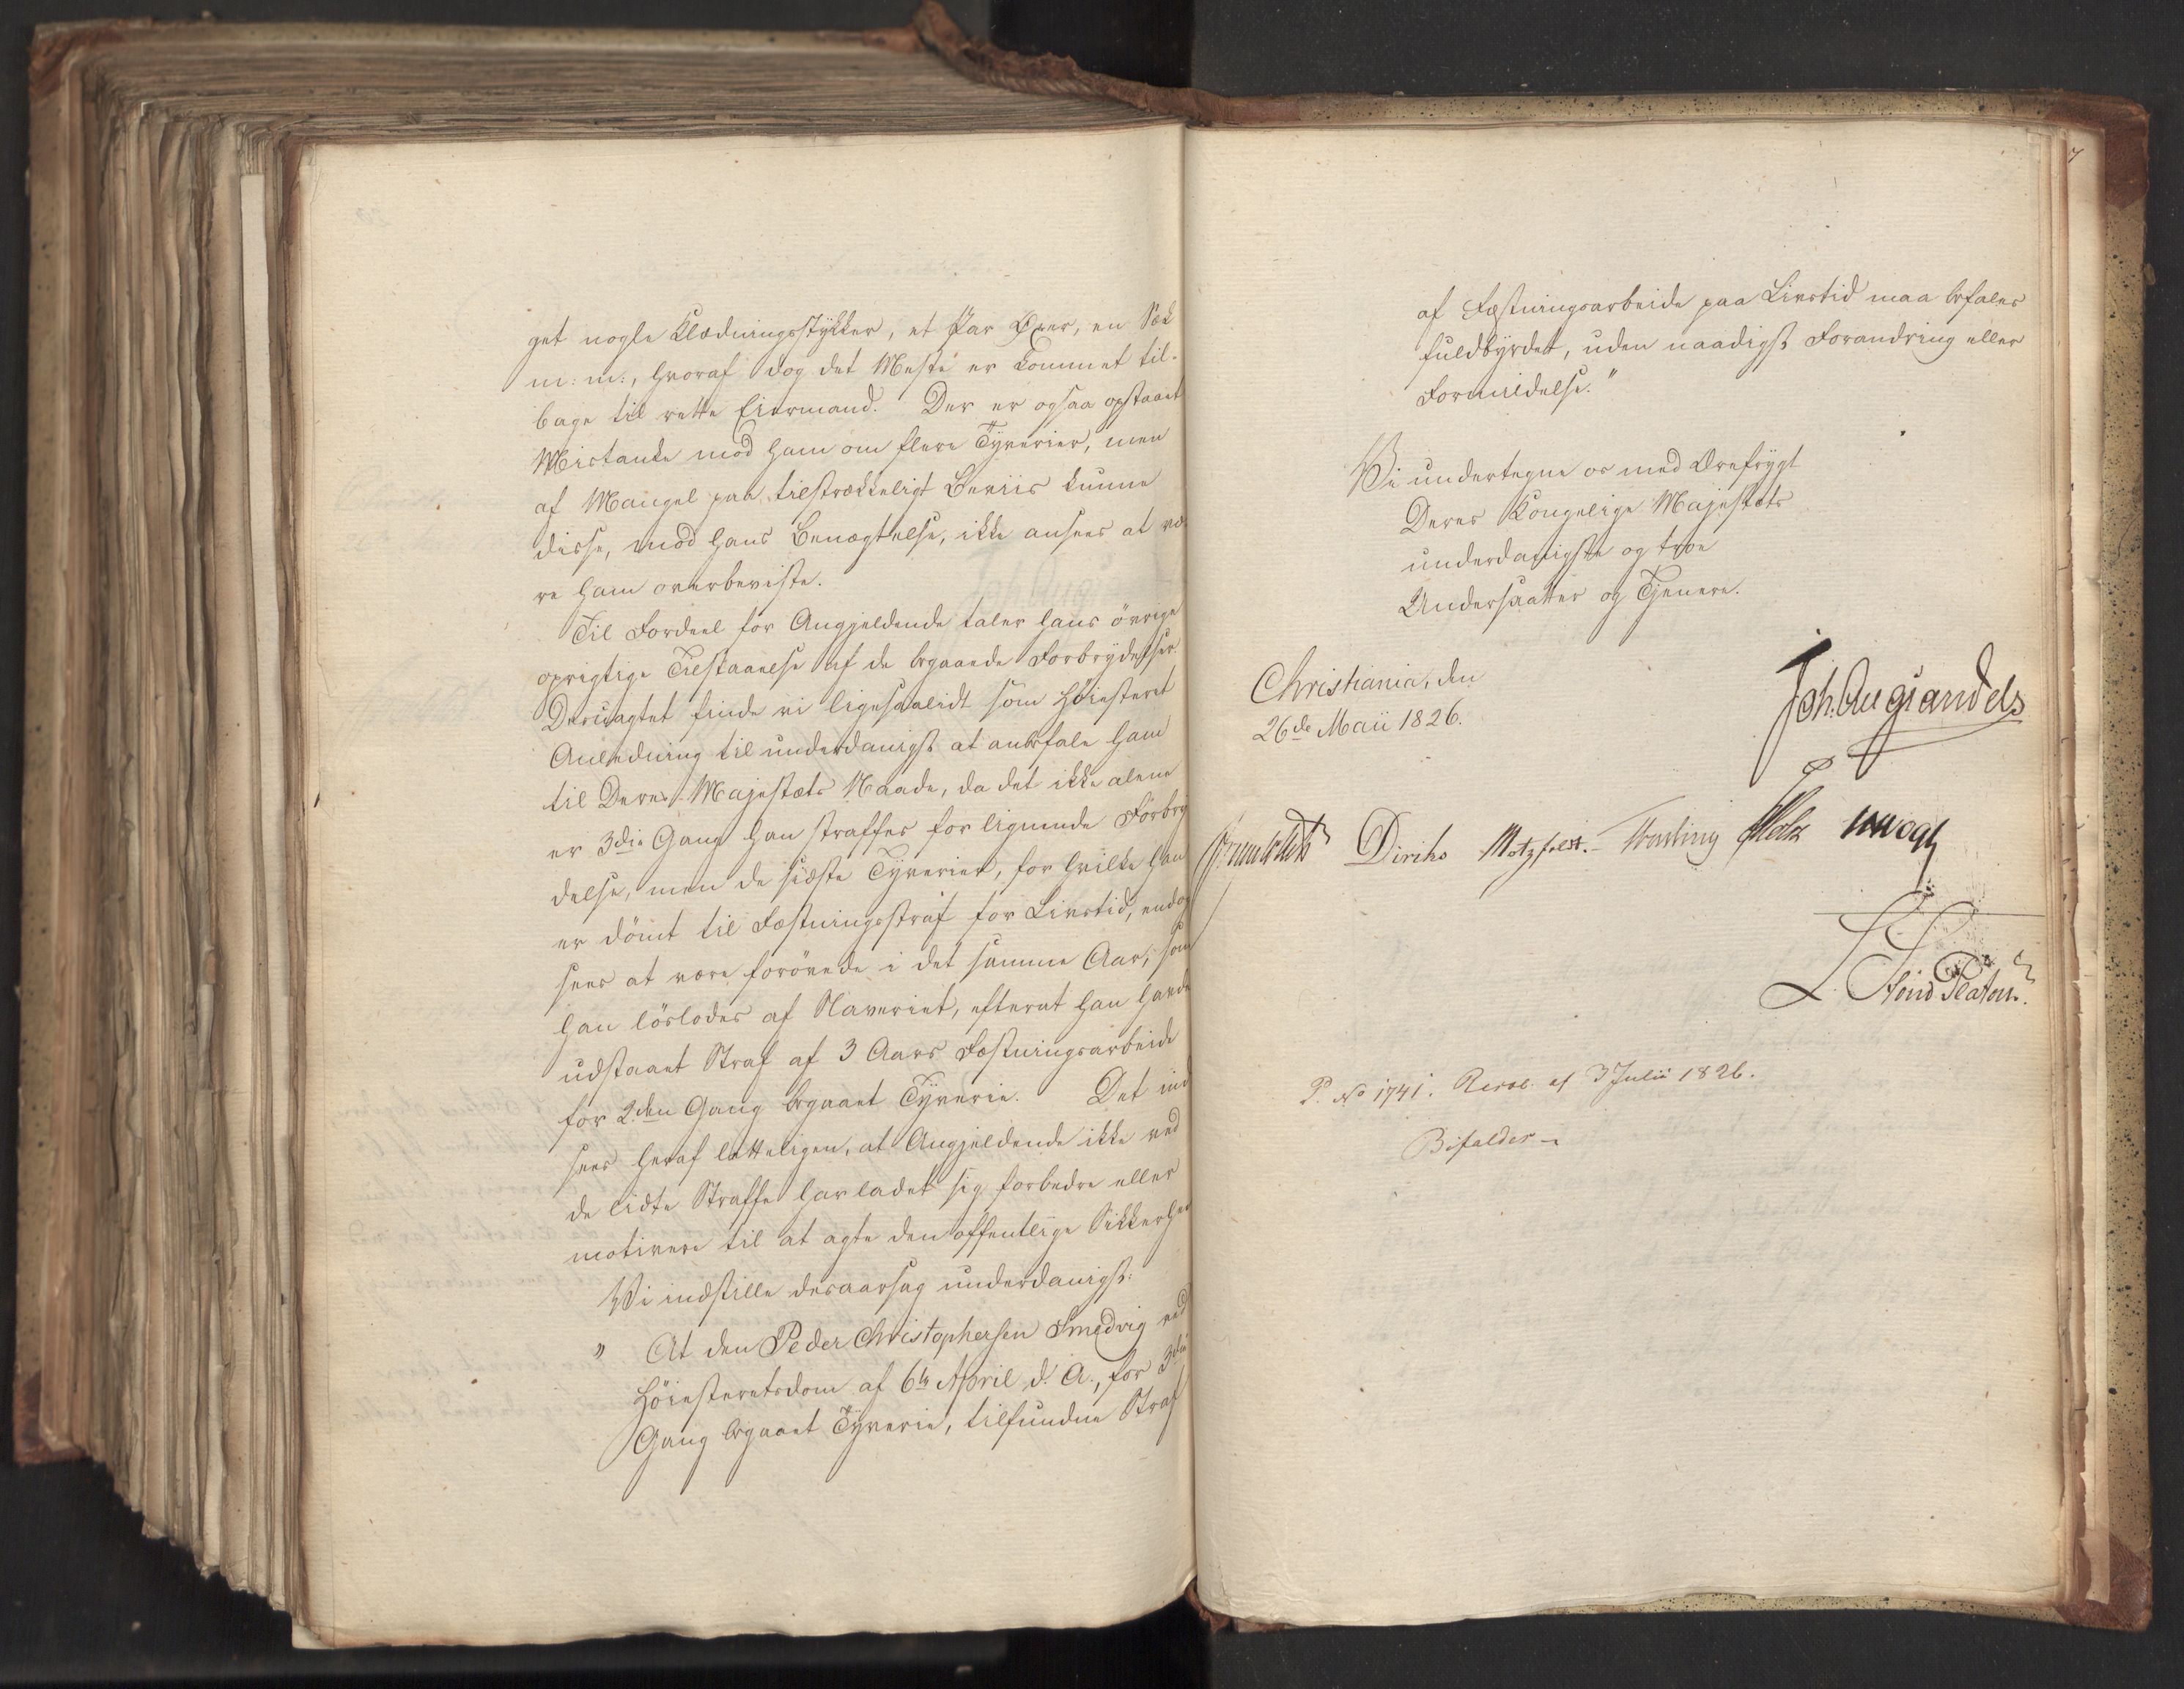 get nogle Klædningsstykker, et Par Øxer, en Sæk
m: m:, hvoraf dog det Meste er kommet til-
bage til rette Eiermand. Der er ogsaa opstaaet
Mistanke mod ham om flere Tyverier, men
af Mangel paa tilstrækkeligt Beviis kunne
disse, mod hans Benægtelse, ikke ansees at væ-
re ham overbeviste.
Til Fordeel for Angjeldende taler hans övrige
oprigtige Tilstaaelse af de begaaede Forbrydelser.
Deruagtet finde vi ligesaalidt som Höiesteret
Anledning til underdanigst at anbefale ham
til Deres Majestæts Naade, da det ikke alene
er 3die Gang han straffes for lignende Forbry-
delse, men de sidste Tyverier, for hvilke han
er dömt til Fæstningsstraf for Livstid, endog
sees at være forövede i det samme Aar, som
han löslodes af Slaveriet, efterat han havde
udstaaet Straf af 3 Aars Fæstningsarbeide
for 2den Gang begaaet Tyverie. Det ind
sees heraf letteligen, at Angjeldende ikke ved
de lidte Straffe har ladet sig forbedre eller
motivere til at agte den offentlige Sikkerhed
Vi indstille desaarsag underdanigst:
" At den Peder Christophersen Smedvig ved
Höiesteretsdom af 6te April d. A., for 3die
Gang begaaet Tyverie, tilfundne Straf
af Fæstningsarbeide paa Livstid maa befales
fuldbyrdet, uden naadigst Forandring eller
Formildelse."
Vi undertegne os med Ærefrygt
Deres Kongelige Majestæts
underdanigste og troe
Undersaatter og Tjenere.
Christiania, den
26de Maii 1826.
Joh. Aug. Sandels
Diriks Motzfeldt. Fasting Holst JHVogt
L. Stoud Platou.
P. No 1741. Resol. af 3 Julii 1826.
Bifaldes